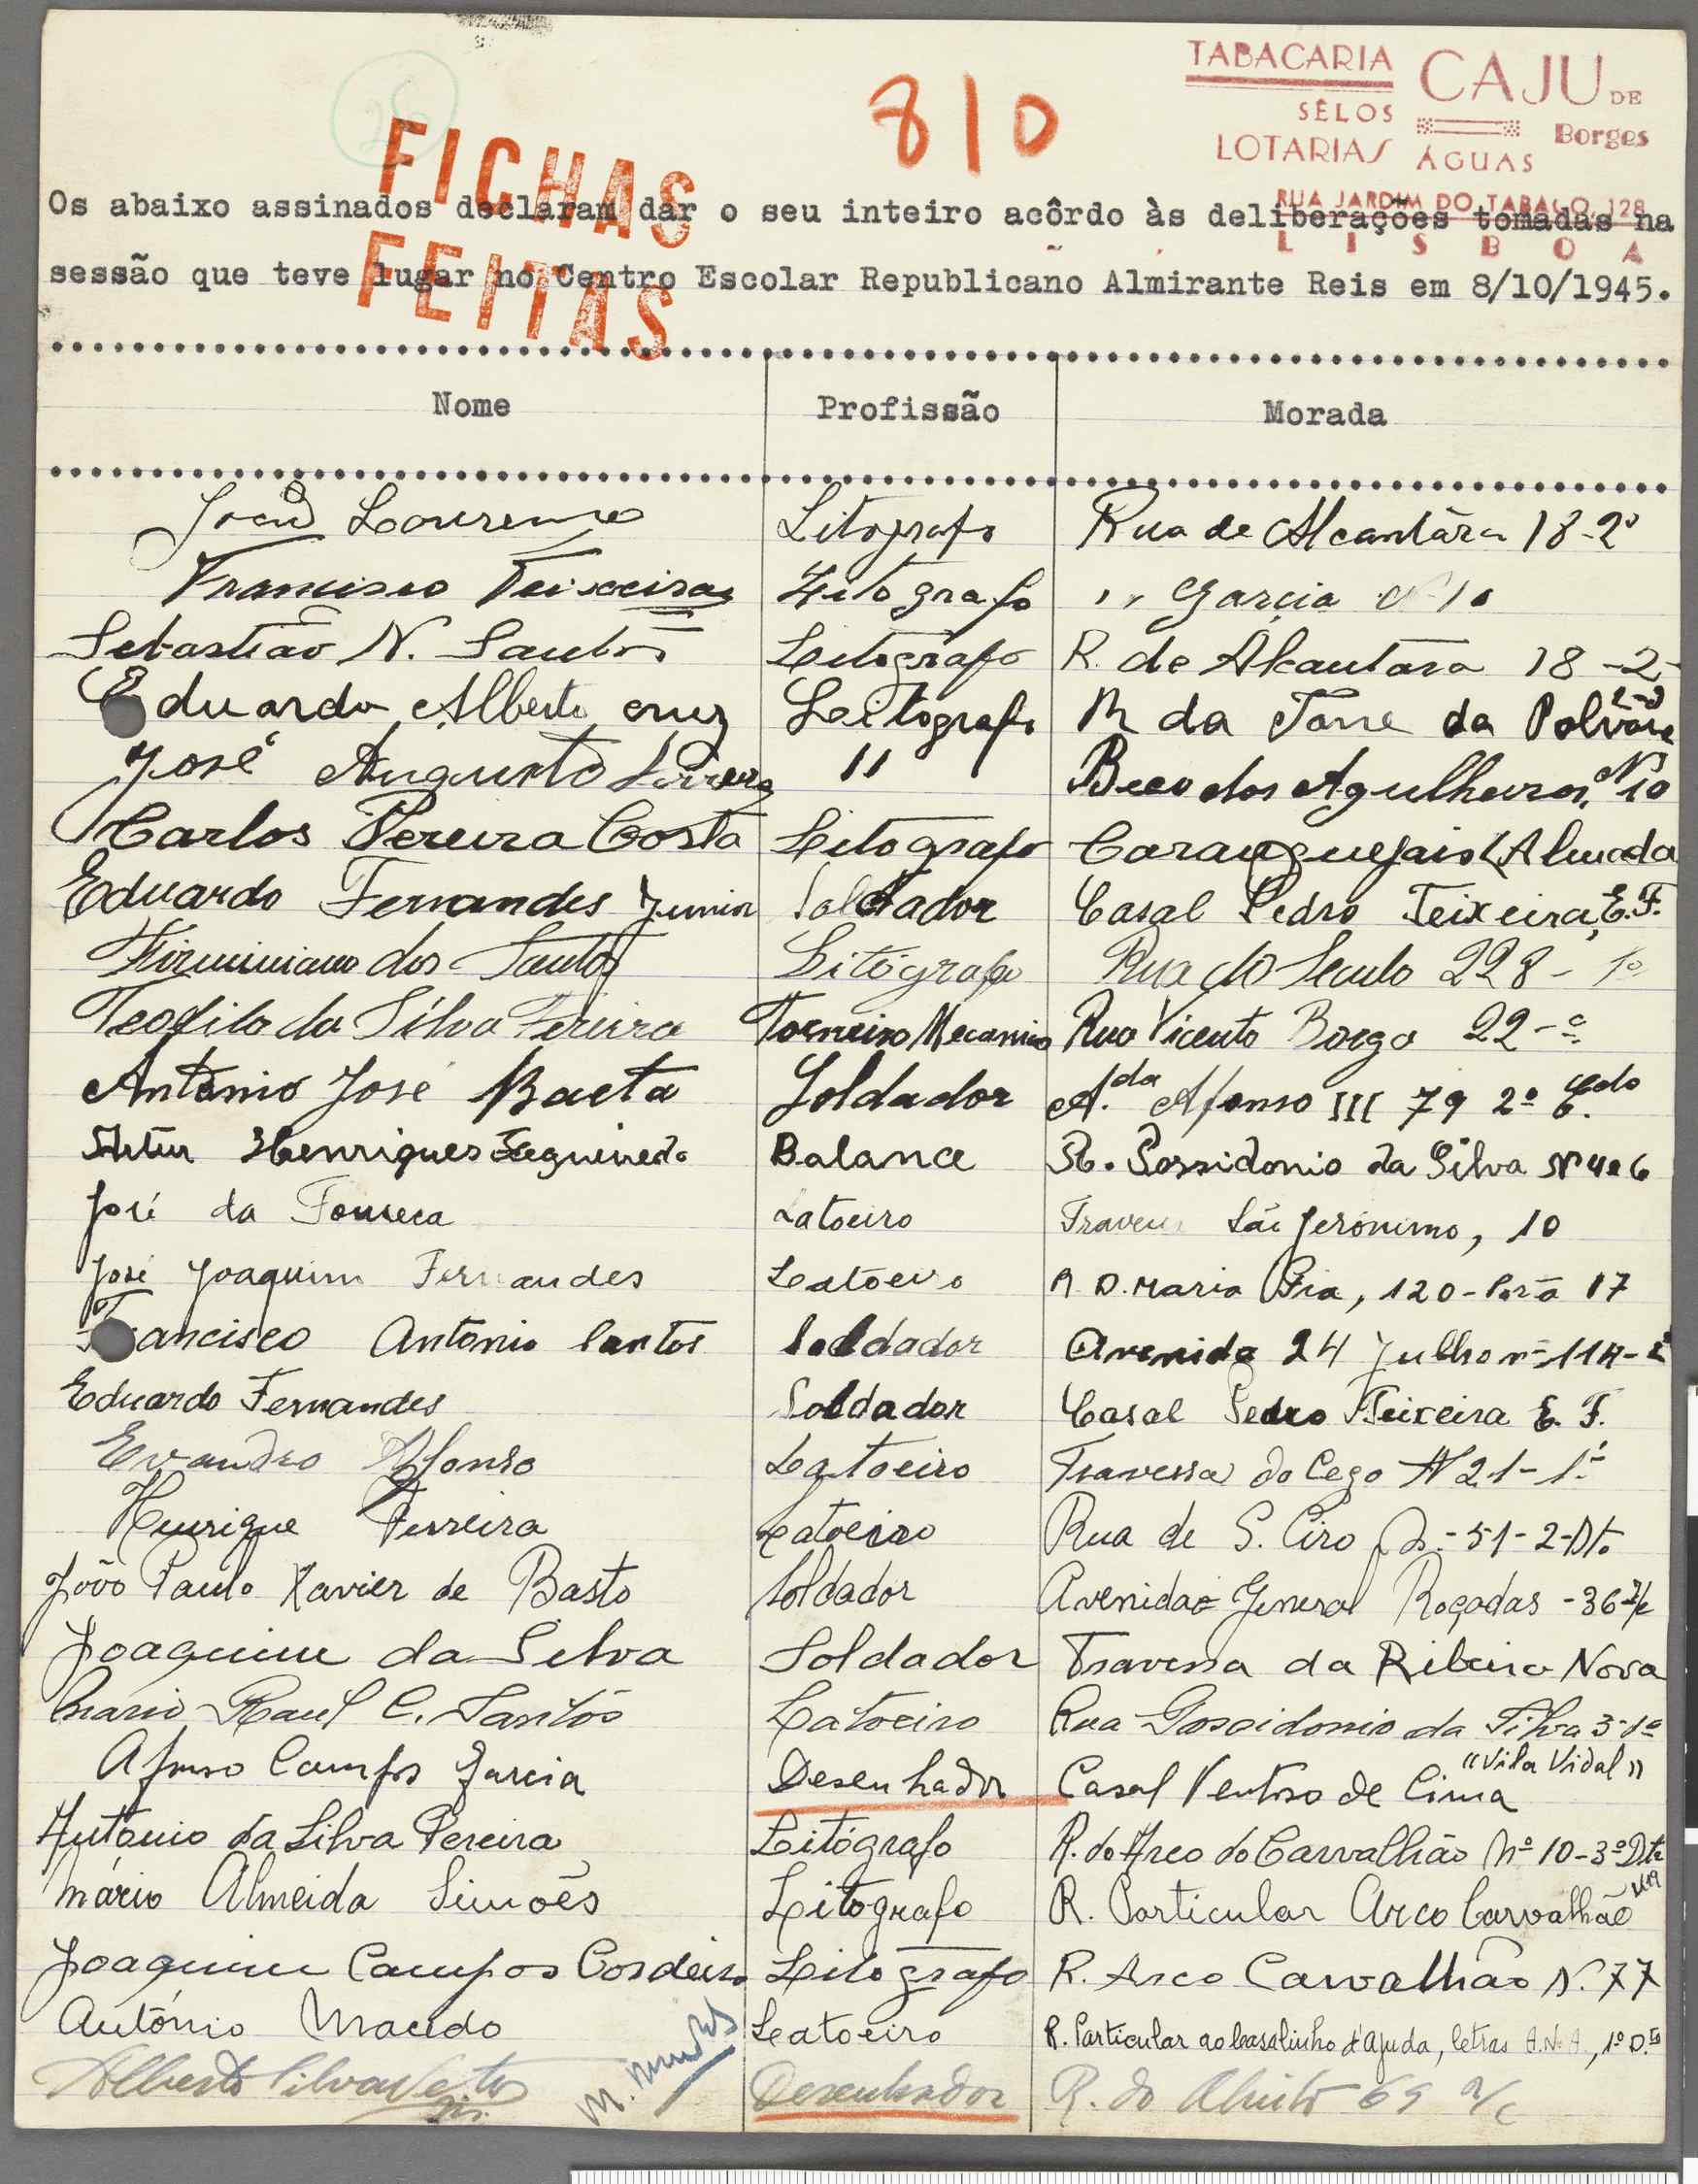 TABACARIA
SÊLOS
LOTARIAS
CAJU DE
Borges
ÁGUAS
RUA JARDIM DO TABACO, 128
LISBOA
810
FICHAS
FEITAS
Os abaixo assinados declaram dar o seu inteiro acôrdo às deliberações tomadas na
sessão que teve lugar no Centro Escolar Republicano Almirante Reis em 8/10/1945.
Nome Profissão Morada
João Lourenço Litografo Rua de Alcantâra 18-2º
Francisco Teixeira Litografo " " Garcia Nº 10
Sebastião N. Santos Litografo R. de Alcantara 18-2-
Eduardo Alberto cruz Leitografo R da Torre da Polvora
José Augusto " Beco dos Agulheiros, Nº 10
Carlos Pereira Costa Litografo Caranguejais (Almada
Eduardo Fernandes Junior Soldador Casal Pedro Teixeira, E.F.
Firminiano dos Santos Litógrafo Rua do Seculo 228- 1º
Teofilo da Silva Pereira Torneiro Mecanico Rua Vicente Borga 22-
António José Baeta Soldador A.da Afonso III 79 2º E.do
Artur Henriques Balance R. Possidonio da Silva Nº
José da Fonseca Latoeiro Travessa São Jerónimo, 10
José Joaquim Fernandes Latoeiro R. D. Maria Pia, 120-Porta 17
Francisco Antonio Santos Soldador Avenida 24 Julho nº
Eduardo Fernandes Soldador Casal Pedro Teixeira E. F.
Evandro Afonso Latoeiro Travessa do Cego Nº 21-1º
Henrique Ferreira Latoeiro Rua de S. Ciro -51-2-Dto
João Paulo Xavier de Basto Soldador Avenida General Roçadas -36 r/c
Joaquim da Silva Soldador Travessa da Ribeira Nova
Mario Raul C. Santos Latoeiro Rua Possidonio da Silva 3-1º
Afonso Campos Garcia Desenhador Casal Ventoso de Cima "Vila Vidal"
António da Silva Pereira Litógrafo R. do Arco do Carvalhão Nº 10-3º Dto
Mário Almeida Simões Litografo R. Particular Arco Carvalhão
Joaquim Campos Cordeiro Litografo R. Arco Carvalhão N. 77
António Macedo Latoeiro R. Particular ao Casalinho d'Ajuda, letras A.N.A., 1º D.to
Alberto Silva Desenhador R. do 69 r/c